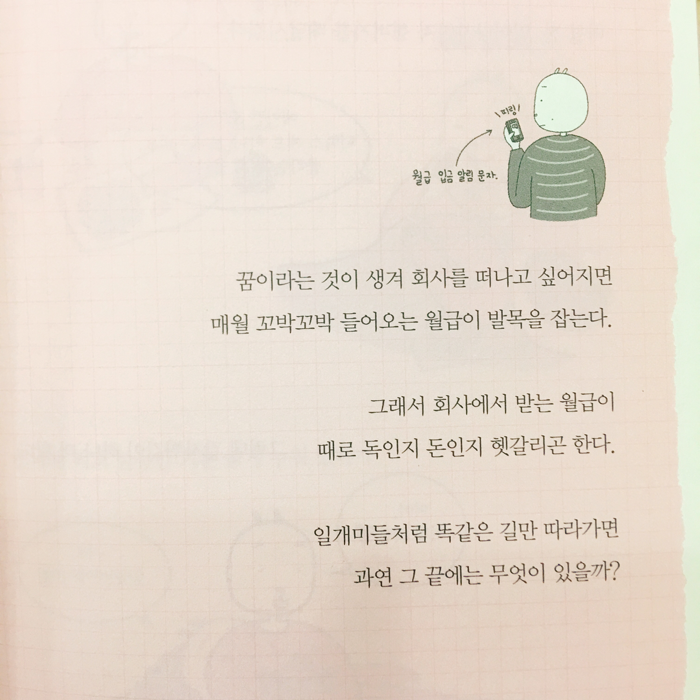 띠링!
월급 입금 알림 문자.
꿈이라는 것이 생겨 회사를 떠나고 싶어지면
매월 꼬박꼬박 들어오는 월급이 발목을 잡는다.
그래서 회사에서 받는 월급이
때로 독인지 돈인지 헷갈리곤 한다.
일개미들처럼 똑같은 길만 따라가면
과연 그 끝에는 무엇이 있을까?